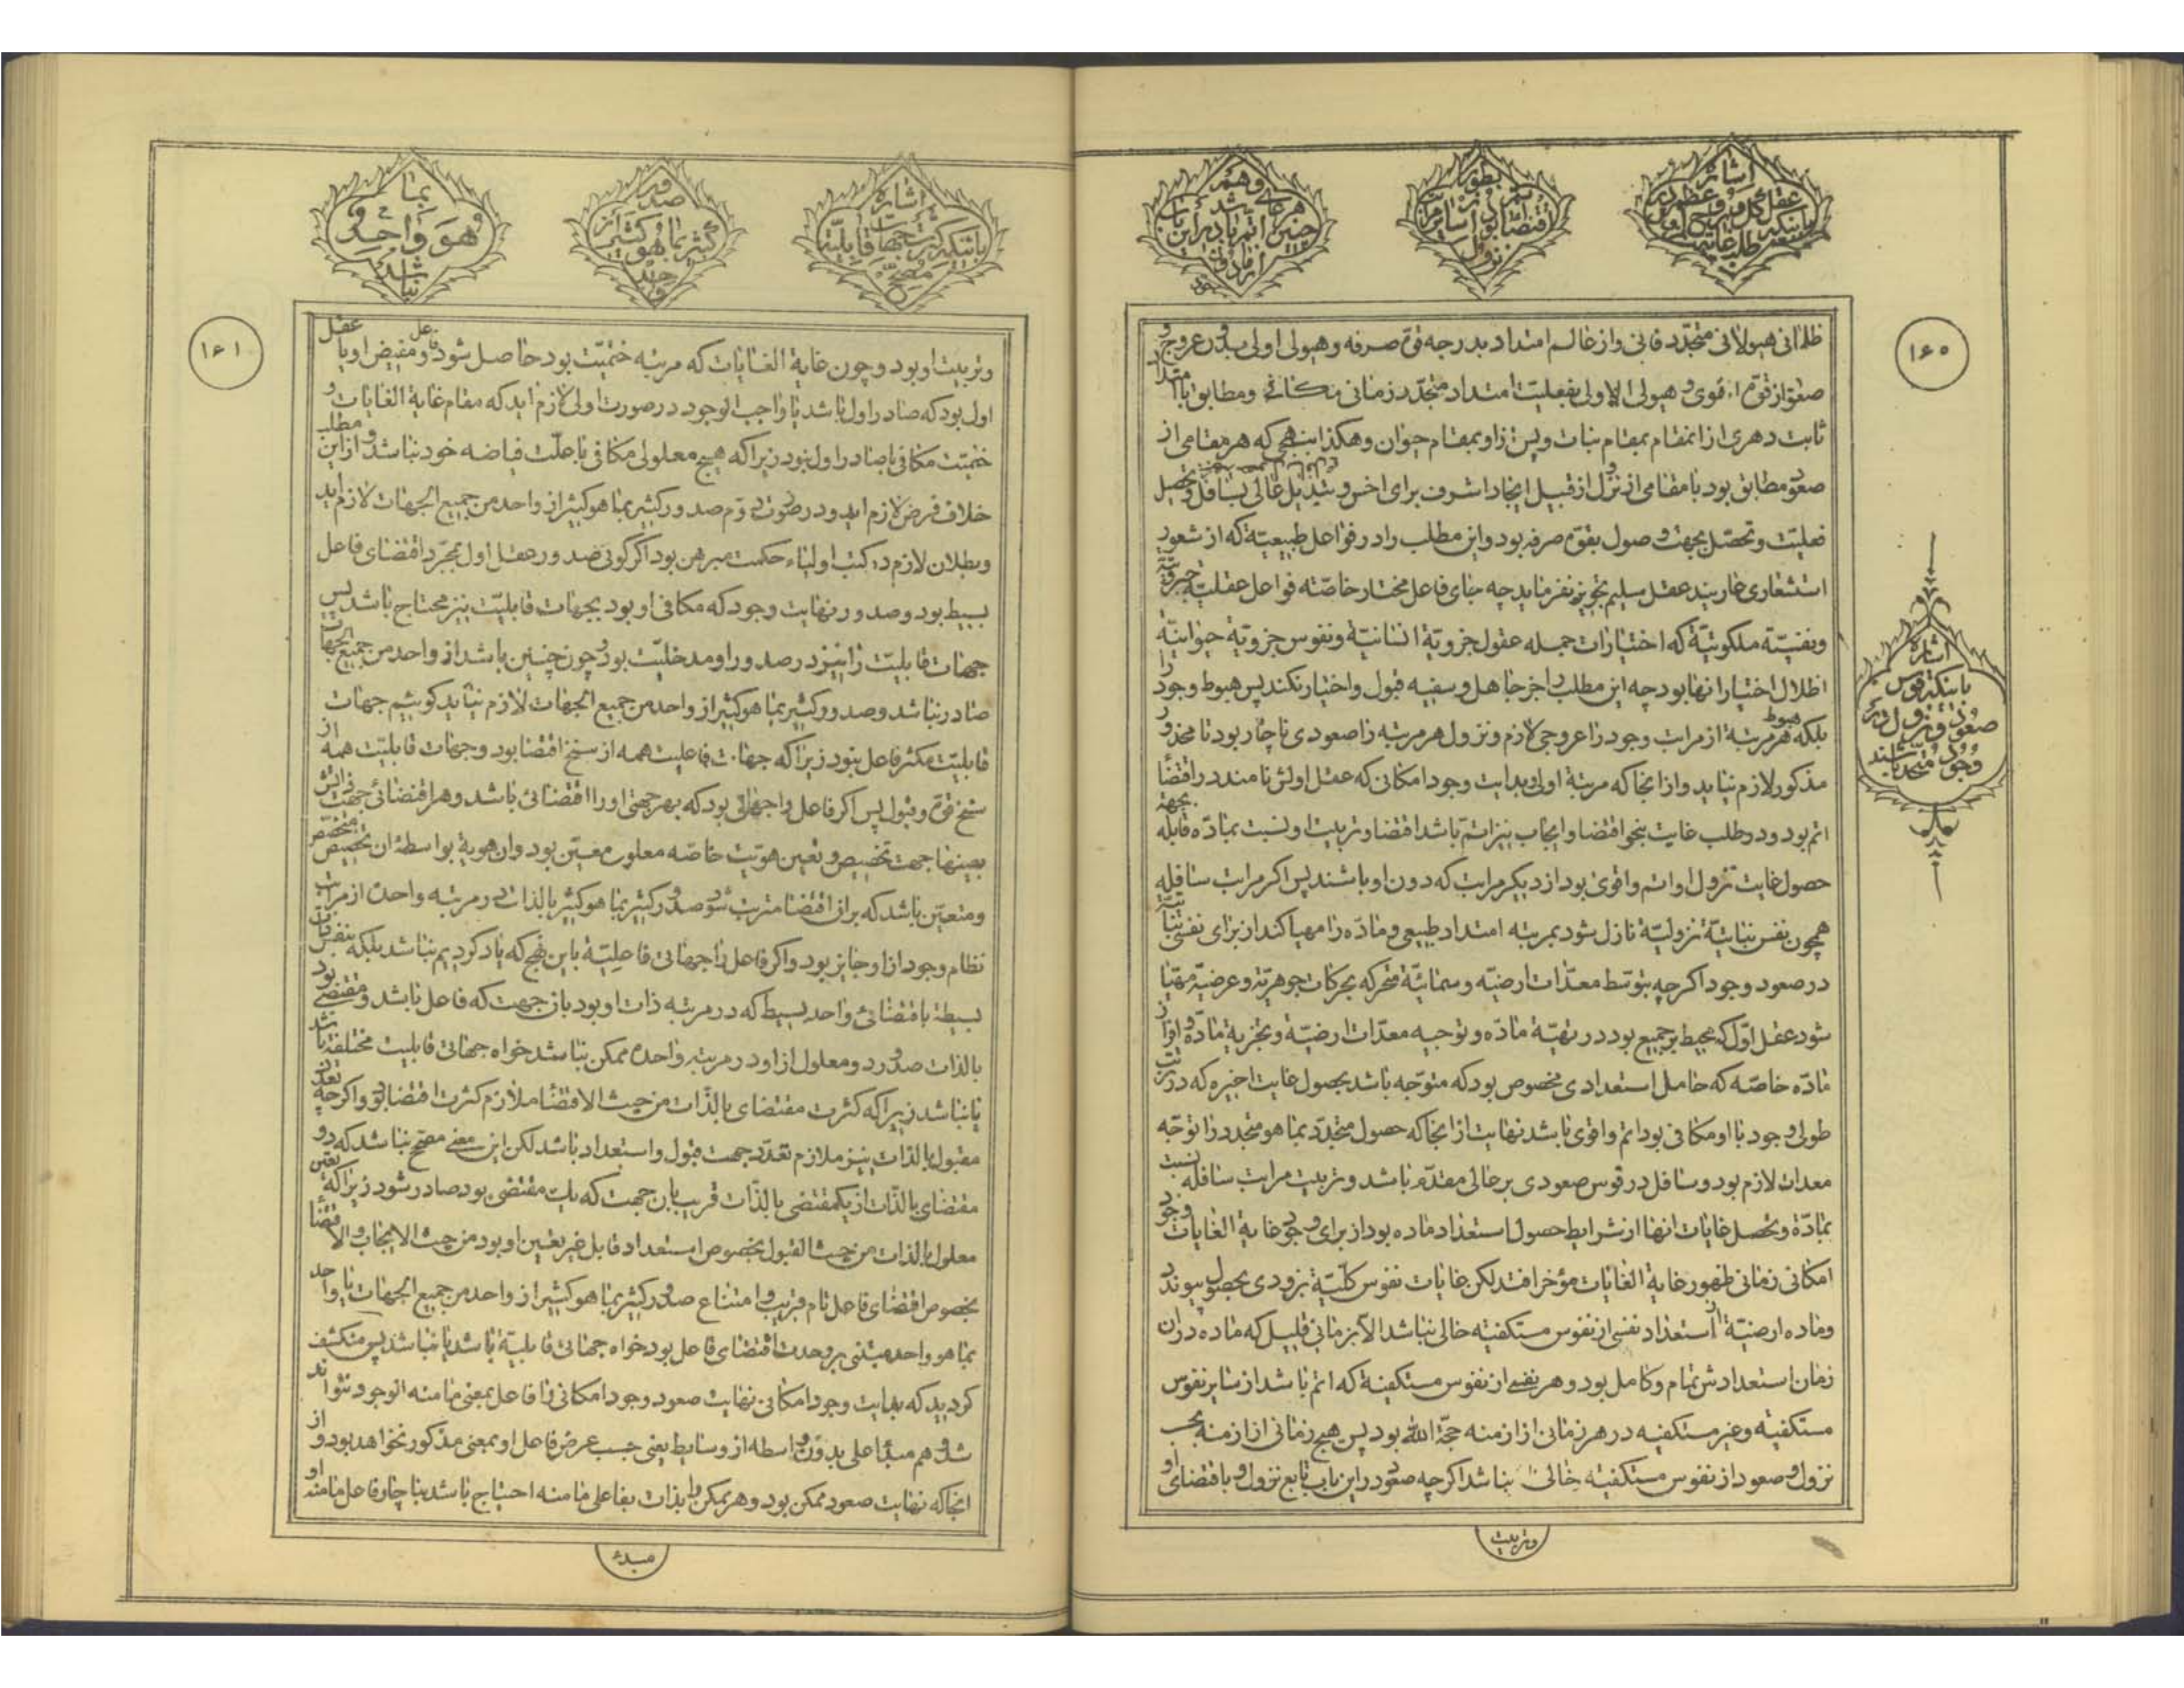 ١٦٠
اشاره
باینکه قوس
صعود و نزول در
وجود متحد باشند
ظلمانی هیولانی متجدد فانی و از عالم امتداد بدرجه قوه صرفه و هیولی اولی و در عروج و
صعود از قوه قوی و هیولی الاولی بفعلیت امتداد متجدد زمانی مکانی و مطابق با امتداد
ثابت دهری از انمقام بمقام نبات و پس از او بمقام حیوان و هکذا بنهجی که هر مقامی از
صعود مطابق بود با مقامی از نزول از قبیل ایجاد اشرف برای اخس و تبدیل عالی بسافل و تحصیل
فعلیت و تحصل بجهت وصول بقوه صرفه بود و این مطلب را در فواعل طبیعیه که از شعور
استشعاری عاریند عقل سلیم تجویز نفرماید چه جای فاعل مختار خاصه فواعل عقلیه جبروتیه
و نفسیه ملکوتیه که اختیارات جمله عقول جزویه انسانیه و نفوس جزویه حیوانیه
اظلال اختیار انها بود چه این مطلب را جز جاهل و سفیه قبول و اختیار نکند پس هبوط وجود را
بلکه هبوط هر مرتبه از مراتب وجود را عروجی لازم و نزول هر مرتبه را صعودی ناچار بود تا محذور
مذکور لازم نیاید و از انجا که مرتبه اولی بدایت وجود امکانی که عقل اولش نامند در اقتضا
اتم بود و در طلب غایت بنحو اقتضا و ایجاب نیز اتم باشد اقتضا و تربیت او نسبت بماده قابله بجهة
حصول غایت نزول او اتم و اقوی بود از دیگر مراتب که دون او باشند پس اگر مراتب سافله
همچون نفس نباتیه نزولیه نازل شود بمرتبه امتداد طبیعی و ماده را مهیا کند از برای نفس نباتیه
در صعود وجود اگرچه بتوسط معدات ارضیه و سمائیه متحرکه بحرکات جوهریه و عرضیه مهیا
شود عقل اول که محیط بر جمیع بود در تهیه ماده و توجیه معدات ارضیه و تجزیه ماده و افراز
ماده خاصه که حامل استعدادی مخصوص بود که متوجه باشد بحصول غایت اخیره که در ترتیب
طولی وجود با او مکافی بود اتم و اقوی باشد نهایت از انجا که حصول متجدد بما هو متجدد را توجه
معدات لازم بود و سافل در قوس صعودی بر عالی مقدم باشد و تربیت مراتب سافله نسبت
بماده و تحصل غایات انها از شرایط حصول استعداد ماده بود از برای وجود غایة الغایات وجود
امکانی زمانی ظهور غایة الغایات مؤخر افتد لکن غایات نفوس کلیه بزودی بحصول پیوندد
و ماده ارضیه از استعداد نفسی از نفوس مستکفیه خالی نباشد الا بزمانی قلیل که ماده در ان
زمان استعدادش تمام و کامل بود و هر نفسی از نفوس مستکفیه که اتم باشد از سایر نفوس
مستکفیه و غیر مستکفیه در هر زمانی از ازمنه حجة الله بود پس هیچ زمانی از ازمنه بحسب
نزول و صعود از نفوس مستکفیه خالی نباشد اگرچه صعود در این باب تابع نزول و باقتضای او
و تربیت
١٦١
اشاره
باینکه کثرت جهات قابلیه
مصحح
صدور
کثیر بما هو کثیر از
واحد
بما
هو واحد
نباشد
و تربیت او بود و چون غایة الغایات که مرتبه ختمیت بود حاصل شود فاعل و مفیض او یا عقل
اول بود که صادر اول باشد یا واجب الوجود در صورت اولی لازم اید که مقام غایة الغایات و
ختمیت مکافی با صادر اول نبود زیرا که هیچ معلولی مکافی با علت فیاضه خود نباشد و از این مطلب
خلاف فرض لازم اید و در صورت دوم صدور کثیر بما هو کثیر از واحد من جمیع الجهات لازم اید
و بطلان لازم در کتب اولیاء حکمت مبرهن بود اگر گوئی صدور عقل اول بمجرد اقتضای فاعل
بسیط بود و صدور نهایت وجود که مکافی او بود بجهات قابلیت نیز محتاج باشد پس
جهات قابلیت را نیز در صدور او مدخلیت بود و چون چنین باشد از واحد من جمیع الجهات
صادر نباشد و صدور کثیر بما هو کثیر از واحد من جمیع الجهات لازم نیاید گوئیم جهات
قابلیت مکثر فاعل نبود زیرا که جهات فاعلیت همه از سنخ اقتضا بود و جهات قابلیت همه از
سنخ قوه و قبول پس اگر فاعل را جهاتی بود که بهر جهتی او را اقتضائی باشد و هر اقتضائی جهت ذاتش
بعینها جهت تخصیص و تعین هویت خاصه معلول معین بود و ان هویة بواسطه ان تخصیص متخصص
و متعین باشد که بر ان اقتضا مترتب شود صدور کثیر بما هو کثیر بالذات در مرتبه واحده از مراتب
نظام وجود از او جایز بود و اگر فاعل را جهاتی فاعلیة باین نهج که یاد کردیم نباشد بلکه بنفس ذات
بسیطه باقتضائی واحد بسیط که در مرتبه ذات او بود بان جهت که فاعل باشد و مقتضی بود
بالذات صدور دو معلول از او در مرتبه واحده ممکن نباشد خواه جهاتی قابلیت مختلفه باشد
یا نباشد زیرا که کثرت مقتضای بالذات من حیث الاقتضا ملازم کثرت اقتضا بود و اگرچه تعدد
مقبول بالذات نیز ملازم تعدد جهت قبول و استعداد باشد لکن این معنی مصحح نباشد که دو
مقتضای بالذات از یکمقتضی بالذات قریب بان جهت که یک مقتضی بود صادر شود زیرا که تعین
معلول بالذات من حیث القبول بخصوص استعداد قابل غیر تعین او بود من حیث الایجاب و الاقتضا
بخصوص اقتضای فاعل تام قریب و امتناع صدور کثیر بما هو کثیر از واحد من جمیع الجهات یا واحد
بما هو واحد مبتنی بر وحدت اقتضای فاعل بود خواه جهاتی قابلیة باشد یا نباشد پس منکشف
گردید که بدایت وجود امکانی نهایت صعود وجود امکانی را فاعل بمعنی ما منه الوجود نتواند
شد و هم مبدأ اعلی بدون واسطه از وسایط یعنی حسب عرض فاعل او بمعنی مذکور نخواهد بود و از
انجا که نهایت صعود ممکن بود و هر ممکن را بالذات بفاعلی ما منه احتیاج باشد بناچار فاعل ما منه او
مبدء